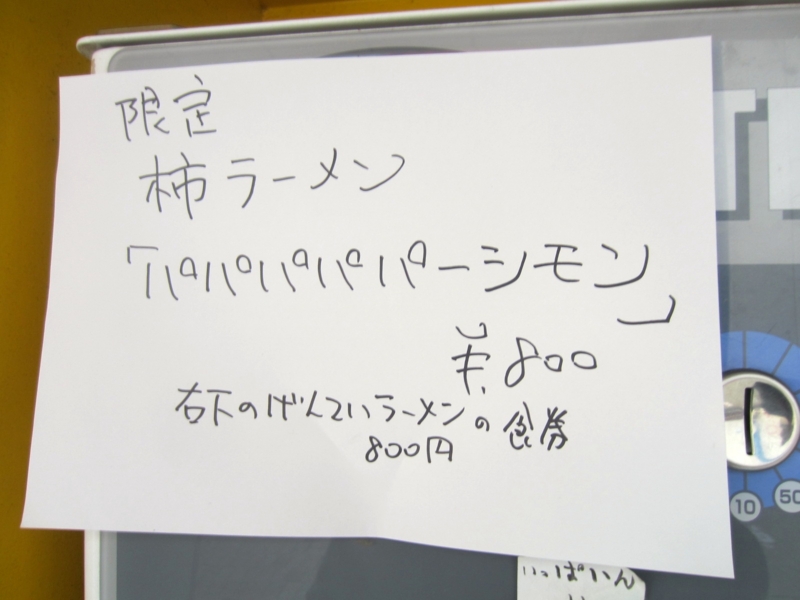 限定
柿ラーメン
「パパパパパパーシモン」
¥800
右下のげんていラーメンの食券
800円
10
50
いっぱいん